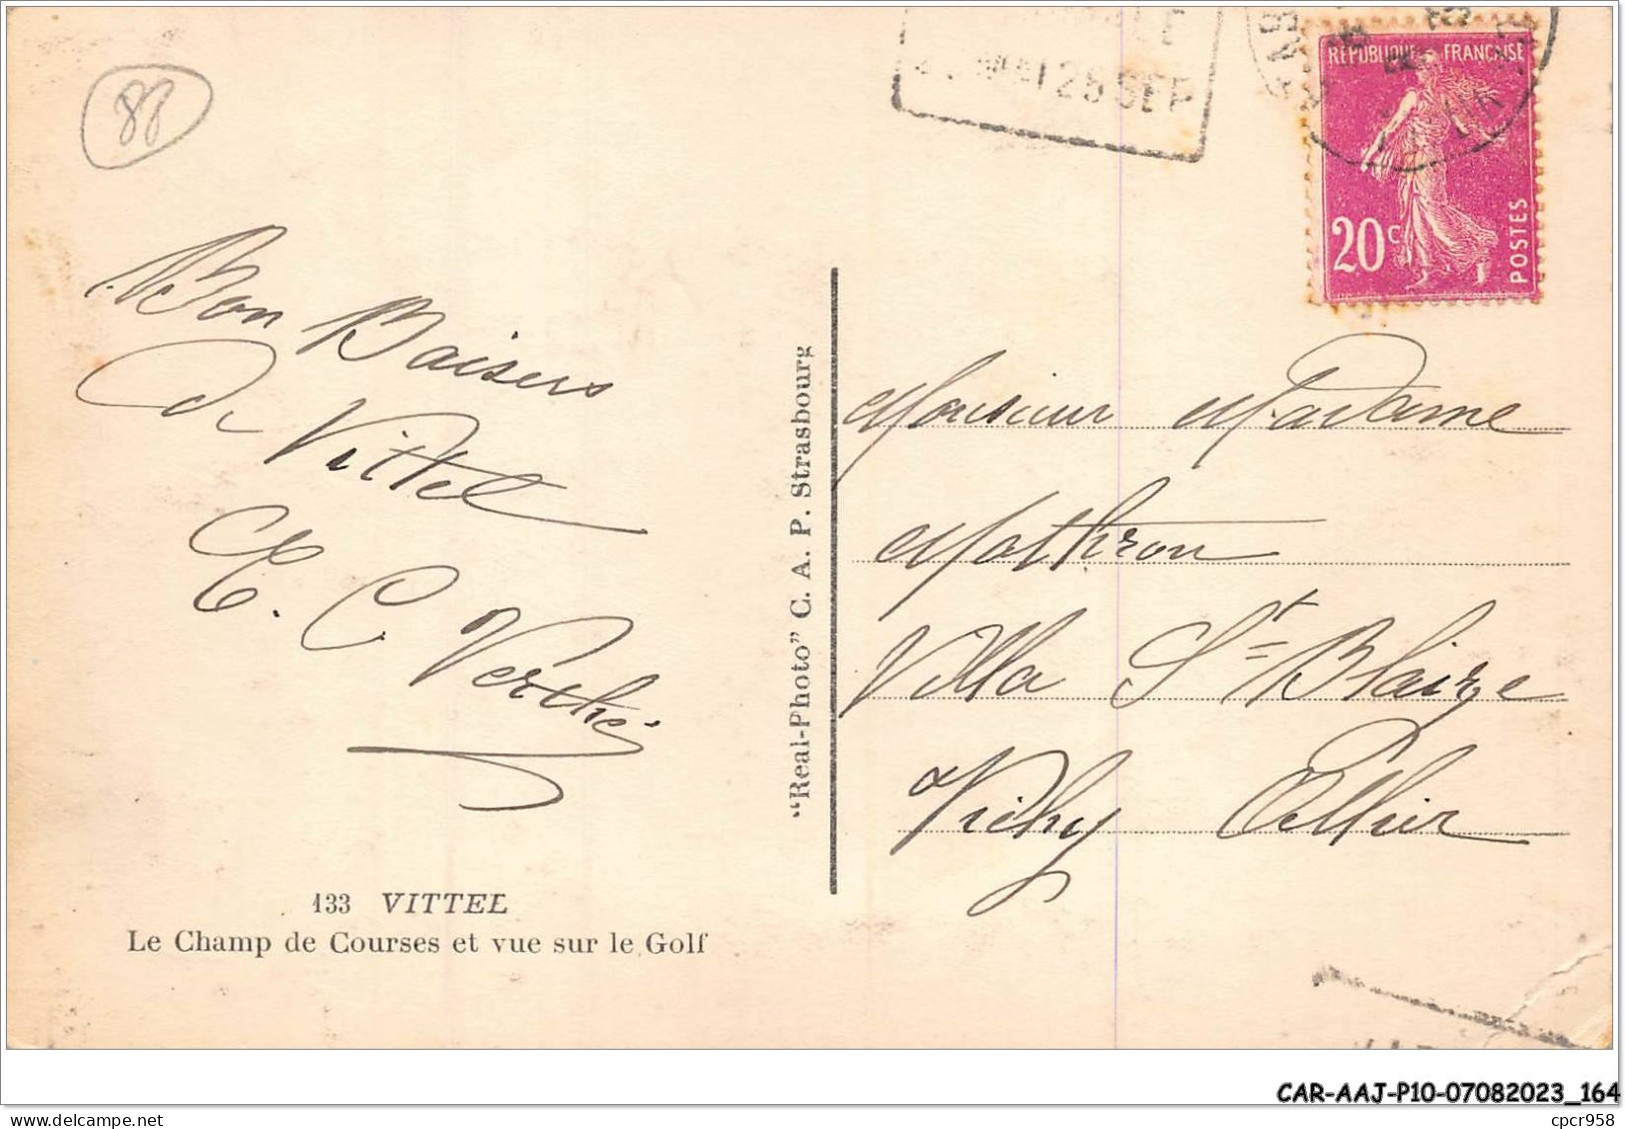 88
MAI 25 SEP
RÉPUBLIQUE FRANÇAISE
20c
POSTES
Bon Baisers
de Vittel
E. C Verthé
Monsieur Madame
Mathron
Villa St= Blaize
Vichy Allier
"Real-Photo" C. A. P. Strasbourg
133 VITTEL
Le Champ de Courses et vue sur le Golf
CAR-AAJ-P10-07082023_164
cpcr958